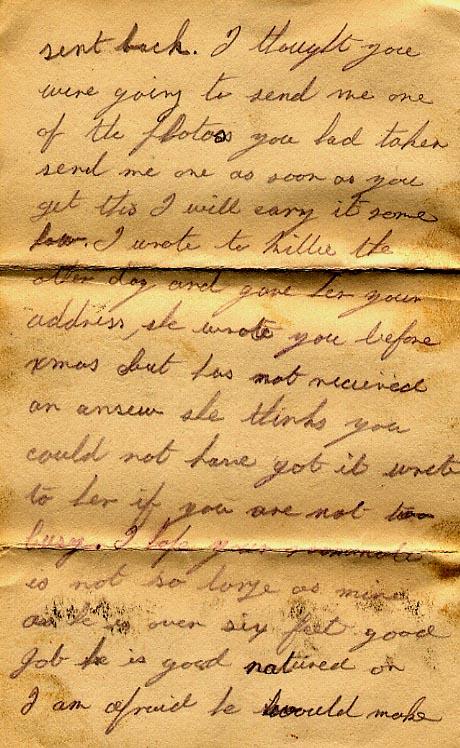 sent back. I thought you
were going to send me one
of the photos you had taken
send me one as soon as you
get this I will carry it some
how. I wrote to Lillie the
other day and gave her your
address, she wrote you before
xmas but has not recieved
an answer she thinks you
could not have got it wrote
to her if you are not too
busy. I hope your roommate
is not so large as mine
as he is over six feet good
job he is good natured or
I am afraid he would make